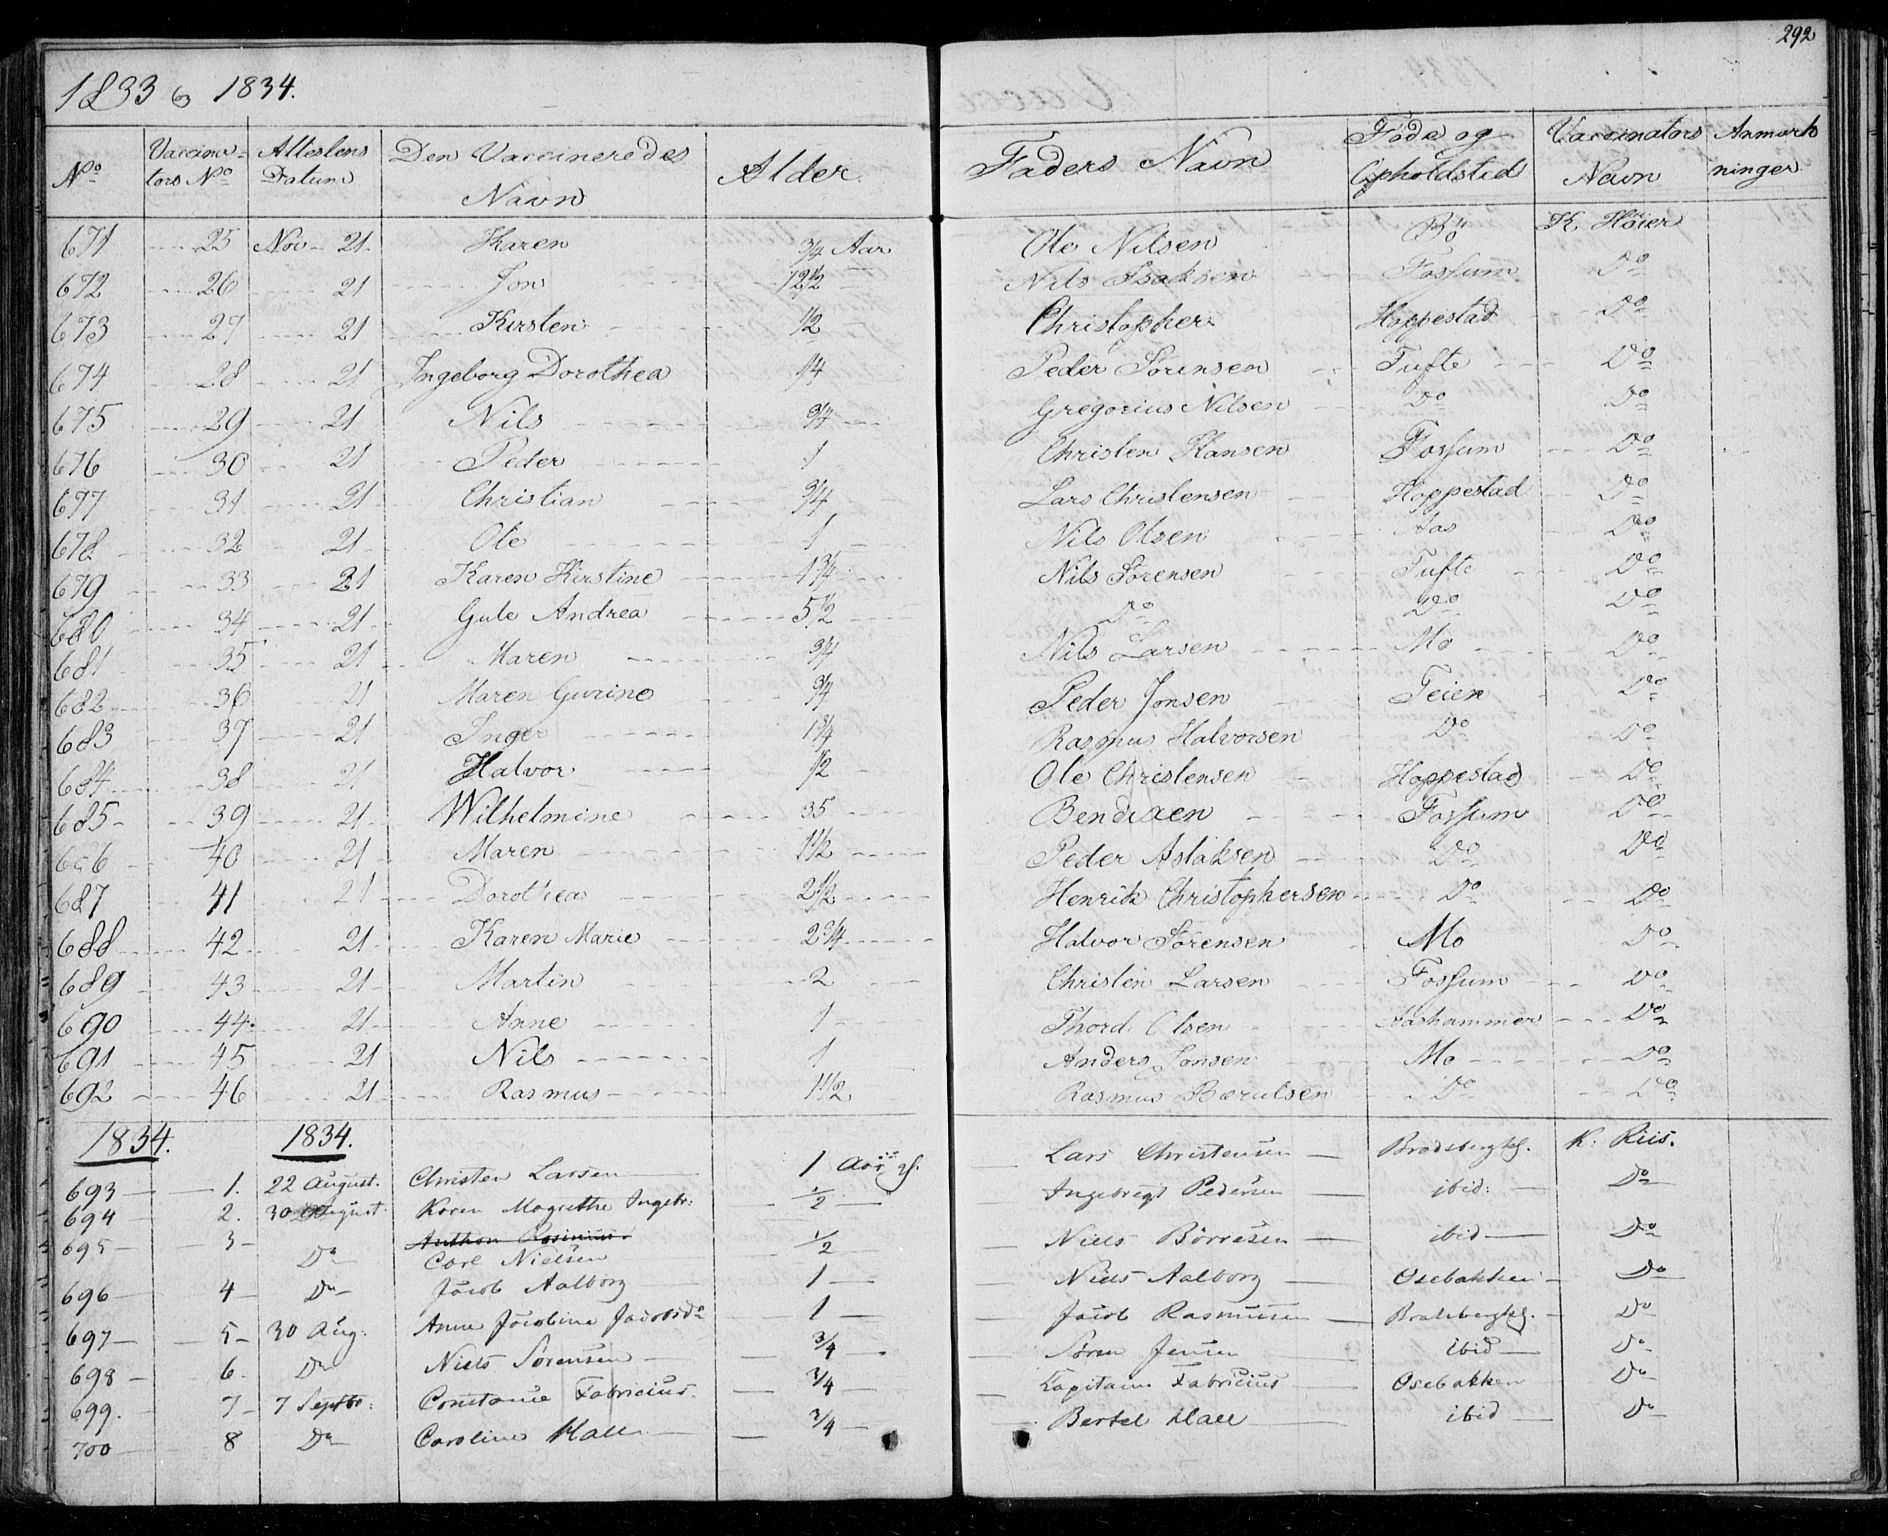 292
1833 og 1834.
No | Vaccinators No | Attestens Datum | Den Vaccineredes Navn | Alder | Faders Navn | Føde og Opholdsted | Vaccinators Navn | Anmærkninger
671 25 Nov 21 Karen 3/4 Aar Ole Nilsen K. Høier
672 26 21 Jon 12 1/2 Nils Isaksen Fossum Do
673 27 21 Kirsten 1/2 Christopher Hoppestad Do
674 28 21 Ingeborg Dorothea 1/4 Peder Sørensen Tufte Do
675 29 21 Nils 3/4 Gregorius Nilsen Do Do
676 30 21 Peder 1 Christen Hansen Fossum Do
677 31 21 Christian 3/4 Lars Christensen Hoppestad Do
678 32 21 Ole 1 Nils Olsen Aas Do
679 33 21 Karen Kirstine 1 3/4 Nils Sørensen Tufte Do
680 34 21 Gule Andrea 5 1/2 Do Do Do
681 35 21 Maren 3/4 Nils Larsen Mo Do
682 36 21 Maren Gurine 3/4 Peder Jonsen Teien Do
683 37 21 Inger 1 3/4 Rasmus Halvorsen Do Do
684 38 21 Halvor 1/2 Ole Christensen Hoppestad Do
685 39 21 Wilhelmine 35 Bendixen Fossum Do
686 40 21 Maren 1 1/2 Peder Aslaksen Do Do
687 41 21 Dorothea 2 1/2 Henrik Christophersen Do Do
688 42 21 Karen Marie 2 3/4 Halvor Sørensen Mo Do
689 43 21 Martin 2 Christen Larsen Fossum Do
690 44 21 Anne 1 Thord Olsen Aashammer Do
691 45 21 Nils 1 Anders Jonsen Mo Do
692 46 21 Rasmus 1 1/2 Rasmus Bærulsen Do Do
1834. 1834.
693 1. 22 August. Christen Larsen 1 Lars Christensen K. Riis.
694 2. 30 August Karen Magrethe Ingebr: 1/2 Ingebregt Pedersen ibid: Do
695 3 Do Anthon Rasmus Carl Nielsen 1/2 Niels Børresen ibid Do
696 4 Do Jacob Aalborg 1 Niels Aalborg Osebakken Do
697 5 30 Aug: Anne Jacobine Jacobsd. 1 Jacob Rasmusen Do
698 6 Do Niels Sørensen 3/4 Søren Jensen ibid Do
699. 7 7 Septbr: Constance Fabricius. 3/4 Capitain Fabricius Osebakken Do
700 8 Do Caroline Hall 3/4 Bertel Hall ibid Do